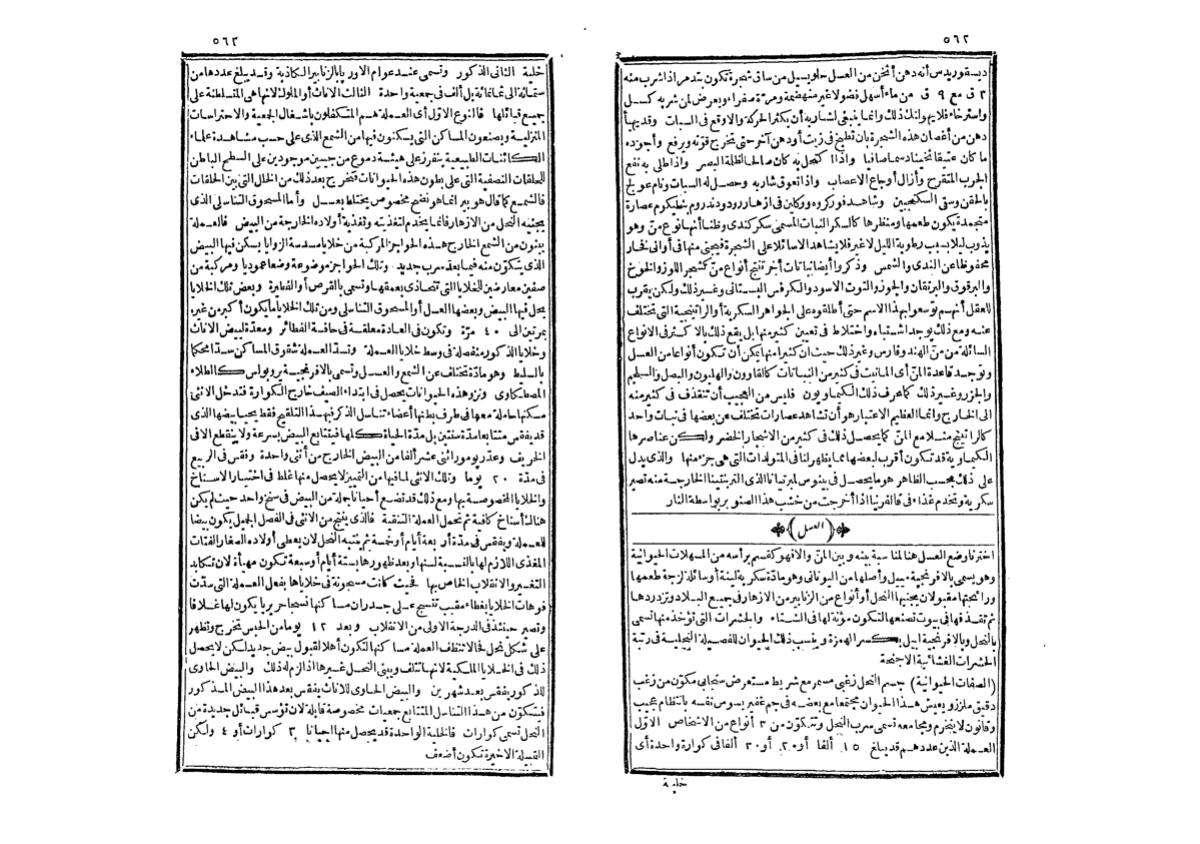 ٥٦٢
ديسقوريدس أنه دهن أثخن من العسل حلو يسيل من ساق شجرة تكون بتدمر اذا شرب منه
٣ ق مع ٩ ق من ماء أسهل فضولا غير منهضمة ومرّة صفراء ويعرض لمن شربه كسل
واسترخاء فلا يهولنك ذلك وانما ينبغى لشاربه أن يكثر الحركة والا وقع فى السبات وقد يهيأ
دهن من أغصان هذه الشجرة بان تطبخ فى زيت أو دهن آخر حتى تخرج قوته ويرفع وأجوده
ما كان عتيقا ثخينا دسما صافيا واذا اكتحل به كان صالحا لظلمة البصر واذا طلى به نفع
الجرب المتقرح وأزال أوجاع الاعصاب واذا تعوق شاربه وحصل له السبات ونام عولج
بالحقن وسقى السكنجبين وشاهد فوركروه ووكلين فى أزهار رودودندروم عصارة
متجمدة يكون طعمها ومنظرها كالسكر النبات المسمى سكر كندى وظنا أنها نوع منّ وهو
يذوب ليلا بسبب رطوبة الليل لا غير فلا يشاهد الا سائلا على الشجرة فيجنى منها فى أوانى فخار
محفوظا عن الندى والشمس وذكروا أيضا نباتات أخر تنتج أنواع منّ كشجر اللوز والخوخ
والبرقوق والبرتقان والجوز والتوت الاسود والكرفس البستانى وغير ذلك ولكن يقرب
للعقل أنهم توسعوا بهذا الاسم حتى أطلقوه على الجواهر السكرية أو الراتينجية التى تختلف
عنه ومع ذلك يوجد اشتباه واختلاط فى تعيين كثير منها بل يقع ذلك بالاكثر فى الانواع
السائلة من منّ الهند وفارس وغير ذلك حيث ان كثيرا منها يمكن أن تكون أنواعا من العسل
وتوجد قاعدة المنّ أى المانيت فى كثير من النباتات كالقاوون والهليون والبصل والسلجم
والجزر وغير ذلك كما عرف ذلك الكيماويون فليس من العجيب أن تنقذف فى كثير منه
الى الخارج وانما العظيم الاعتبار هو أن تشاهد عصارات تختلف عن بعضها فى نبات واحد
كالراتينج مثلا مع المنّ كما يحصل ذلك فى كثير من الاشجار الخضر ولكن عناصرها
الكيماوية قد تكون أقرب لبعضها مما يظهر لنا فى المتولدات التى هى جزء منها والذى يدل
على ذلك بحسب الظاهر هو ما يحصل فى بينوس لمبرتيانا الذى التربنتينا الخارجة منه تصير
سكرية وتخدم غذاء فى قاليفرنيا اذا أخرجت من خشب هذا الصنوبر بواسطة النار
(العسل)
اخترنا وضع العسل هنا لمناسبة بينه وبين المنّ والا فهو كقسم برأسه من المسهلات الحيوانية
وهو يسمى بالافرنجية مييل وأصلها من اليونانى وهو مادة سكرية لينة أو سائلة لزجة طعمها
ورائحتها مقبولان يجنيها النحل أو أنواع من الزنابير من الازهار فى جميع البلاد وتزدردها
ثم تقذفها فى بيوت تصنعها لتكون مؤنة لها فى الشتاء والحشرات التى تؤخذ منها تسمى
بالنحل وبالافرنجية ابيل بكسر الهمزة وينسب ذلك الحيوان للفصيلة النحلية فى رتبة
الحشرات الغشائية الاجنحة
(الصفات الحيوانية) جسم النحل زغبى مسمر مع شريط مستعرض سنجابى مكوّن من زغب
دقيق ملزز ويعيش هذا الحيوان مجتمعا مع بعضه فى جم غفير يسوس نفسه بانتظام عجيب
وقانون لا ينخرم ومجامعه تسمى سرب النحل وتتكوّن من ٣ أنواع من الاشخاص الاوّل
العملة الذين عددهم قد يبلغ ١٥ ألفا أو ٢٠ أو ٣٠ ألفا فى كوارة واحدة أى
خلية
٥٦٣
خلية الثانى الذكور وتسمى عند عوام الاوربا بالزنابير الكاذبة وقد يبلغ عددها من
ستمائة الى ثمانمائة بل ألف فى جمعية واحدة الثالث الاناث أو الملوك لانها هى المتسلطنة على
جميع قبائلها فالنوع الاوّل أى العملة هم المتكفلون باشغال الجمعية والاحتراسات
المنزلية ويصنعون المساكن التى يسكنون فيها من الشمع الذى على حسب مشاهدة علماء
الكائنات الطبيعية يتفرز على هيئة دموع من جيبين موجودين على السطح الباطن
للحلقات النصفية التى على بطون هذه الحيوانات فتخرج بعد ذلك من الخلال التى بين الحلقات
فالشمع كما قال هوبير انما هو نضج مخصوص يختلط بعسل وأما المسحوق التناسلى الذى
يجنيه النحل من الازهار فانما يخدم لتغذيته وتغذية أولاده الخارجة من البيض فالعملة
يبنون من الشمع الخارج هذه الحواجز المركبة من خلايا مسدسة الزوايا يسكن فيها البيض
الذى يتكوّن منه فيما بعد سرب جديد وتلك الحواجز موضوعة وضعا عموديا ومركبة من
صفين معارضين للخلايا التى تتحاذى بعمقها وتسمى بالقرص أو الفطيرة وبعض تلك الخلايا
يجعل فيها البيض وبعضها العسل أو المسحوق التناسلى ومن تلك الخلايا ما يكون أكبر من غيره
بمرتين الى ٤٠ مرّة وتكون فى العادة معلقة فى حافة الفطائر ومعدّة لبيض الاناث
وخلايا الذكور منفصلة فى وسط خلايا العملة وتسد العملة شقوق المساكن سدّا محكما
وهو مادة تختلف عن الشمع والعسل وتسمى بالافرنجية بروبوليس كالطلاء
المصطكاوى ونزو هذه الحيوانات يحصل فى ابتداء الصيف خارج الكوارة فتدخل الانثى
مسكنها حاملة معها فى طرف بطنها أعضاء تناسل الذكر فبهذا التلقيح فقط يحيا بيضها الذى
قد يفقس متتابعا مدة سنتين بل مدة الحياة كلها فيتتابع البيض بسرعة ولا ينقطع الا فى
الخريف وعدّ ريومور اثنى عشر ألفا من البيض الخارج من أنثى واحدة وفقس فى الربيع
فى مدة ٢٠ يوما وتلك الانثى لما فيها من التمييز لا يحصل منها غلط فى اختيار الاسناخ
والخلايا المخصوصة بها ومع ذلك قد تضع أحيانا جملة من البيض فى سنخ واحد حيث لم يكن
هناك أسناخ كافية ثم تحمل العملة التنقية فالذى ينتج من الانثى فى الفصل الجميل يكون بيضا
للعملة ويفقس فى مدة أربعة أيام أو خمسة ثم ينتبه النحل لان يعطى أولاده الصغار الفتات
المغذى اللازم لها بالنسبة لسنها وبعد ظهورها بستة أيام أو سبعة تكون مهيأة لان تكابد
التغيير والانقلاب الخاص بها فحيث كانت مسجونة فى خلاياها بفعل العملة التى سدّت
فوهات الخلايا بغطاء مقبب تنسج على جدران مساكنها نسجا حريريا يكون لها غلافا
وتصير حينئذ فى الدرجة الاولى من الانقلاب وبعد ١٢ يوما من الحبس تخرج وتظهر
على شكل نحل فحالا تنظف العملة مساكنها لتكون أهلا لقبول بيض جديد لكن لا يحصل
ذلك فى الخلايا الملكية لانها تتلف ويبنى النحل غيرها اذا لزم له ذلك والبيض الحاوى
للذكور يفقس بعد شهرين والبيض الحاوى للاناث يفقس بعد هذا البيض المذكور
فيتكوّن من هذا التناسل المتتابع جمعيات مخصوصة قابلة لان تؤسس قبائل جديدة من
النحل تسمى كوارات فالخلية الواحدة قد يحصل منها احيانا ٣ كوارات أو ٤ ولكن
القبيلة الاخيرة تكون أضعف